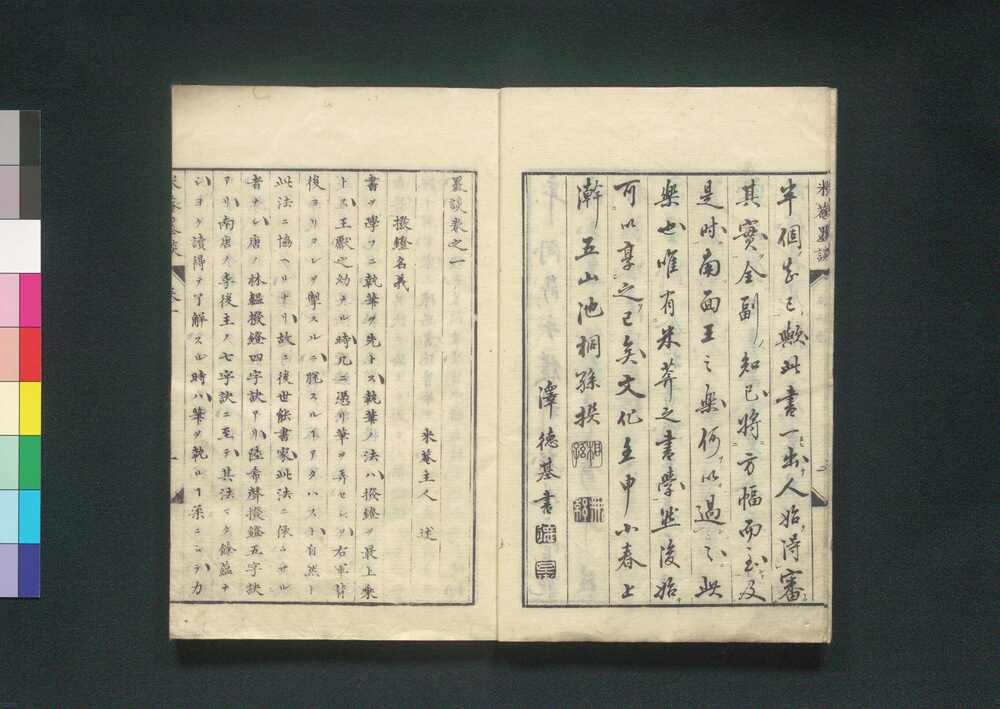 米菴墨談
半個知已歟此書一出人始得審
其實全副知已將方幅而至及
是时南面王之樂何以過之此
樂也唯有米菴之書學然後始
可以享之已矣文化壬申小春上
澣五山池桐孫撰
澤德基書
墨談卷之一
米菴主人 述
撥鐙名義
書ヲ學フニ執筆ヲ先トス執筆ノ法ハ撥鐙ヲ最上乘
トス王獻之幼ナル時凡ニ憑リ筆ヲ弄セシヲ右軍背
後ヨリコレヲ掣スルニ脫スルコアタハスト自然ト
此法ニ協ヘリナリ故ニ後世能書家此法ニ依ラサル
者ナシ唐ノ林韞撥鐙四字訣アリ陸希聲撥鐙五字訣
アリ南唐ノ李後主ノ七字訣ニ至テ其法マタ餘蘊ナ
シヨク讀得テ了解スル時ハ筆ヲ執ルコ柔ニシテ力
米菴墨談 卷一 一